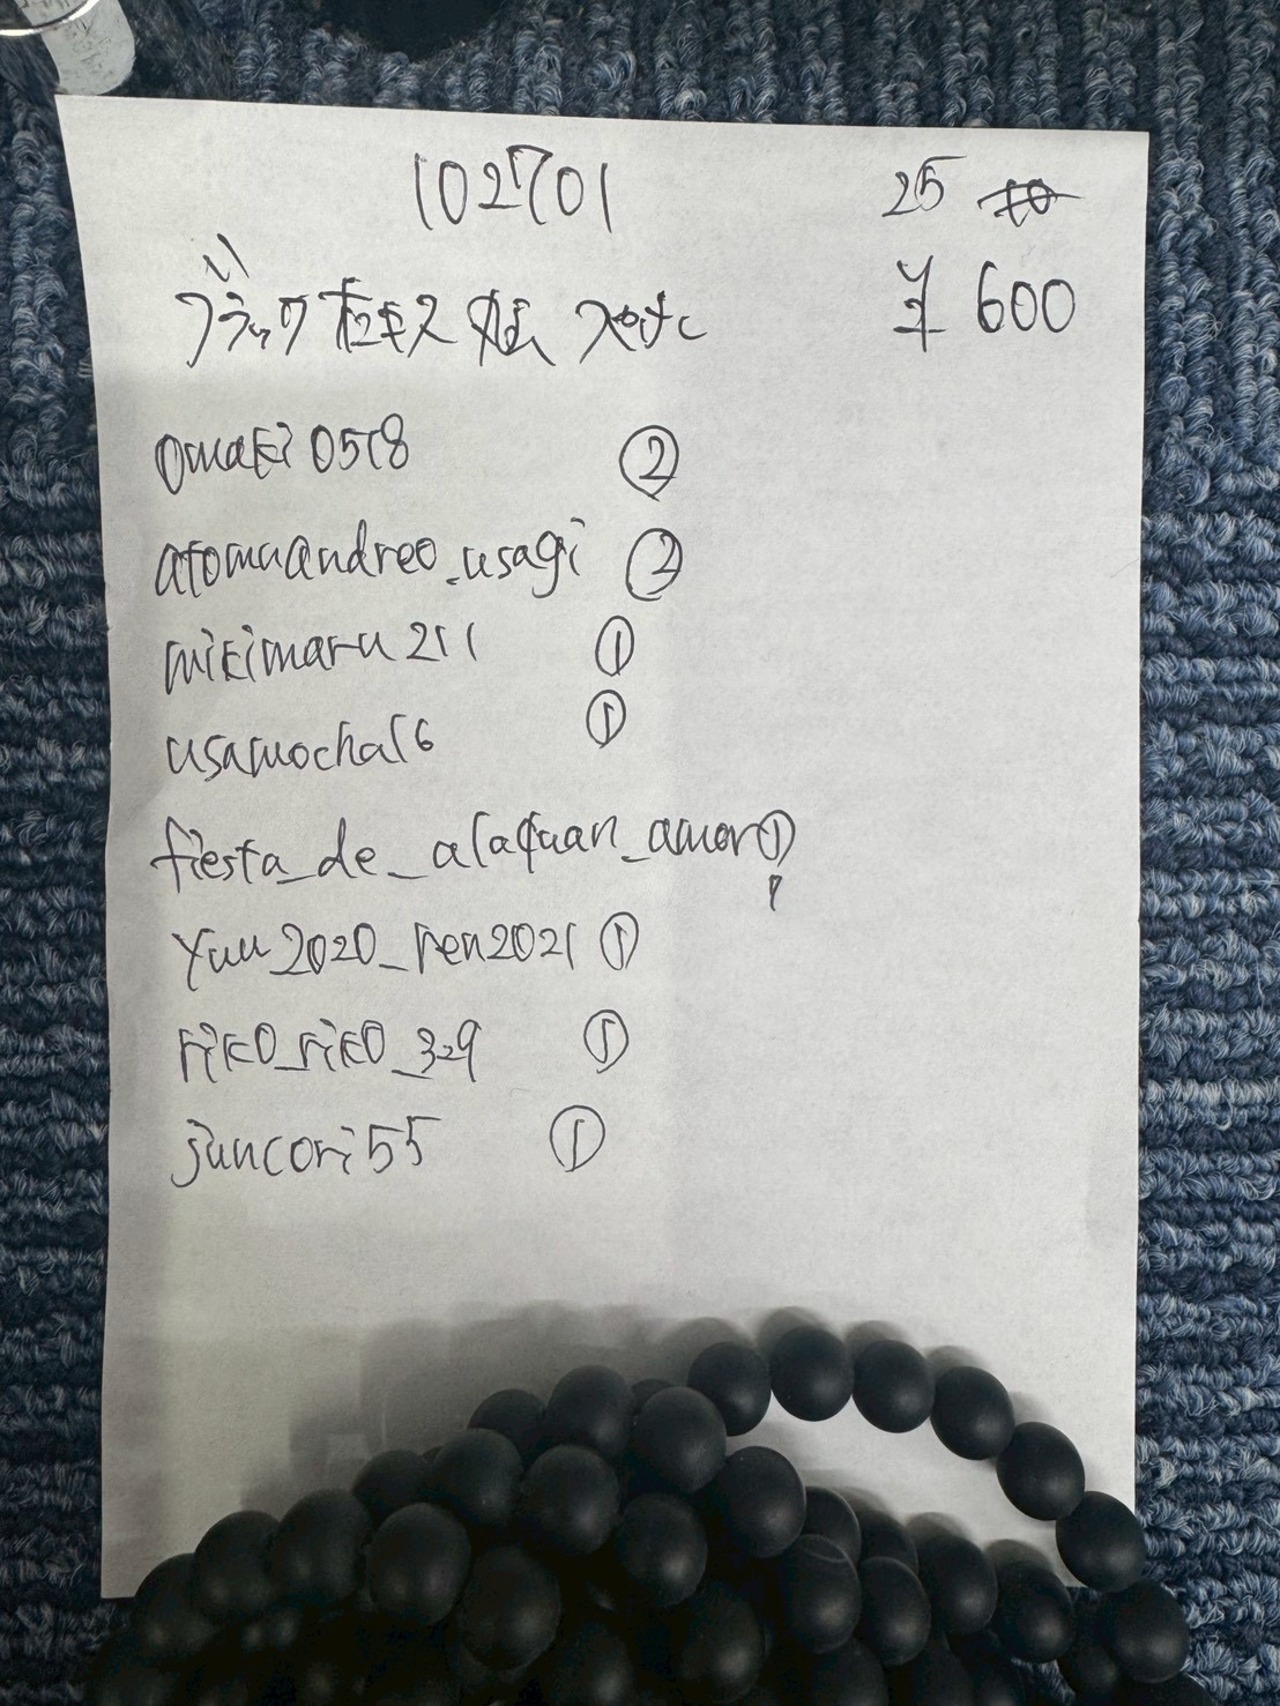 102701
25 10
ブラック
¥600
omaki0518 ②
atomuandreo_usagi ②
mikimaru211 ①
usamocha16 ①
fiesta_de_alaquan_amor ①
yuu2020_ren2021 ①
riko_riko_329 ①
juncori55 ①